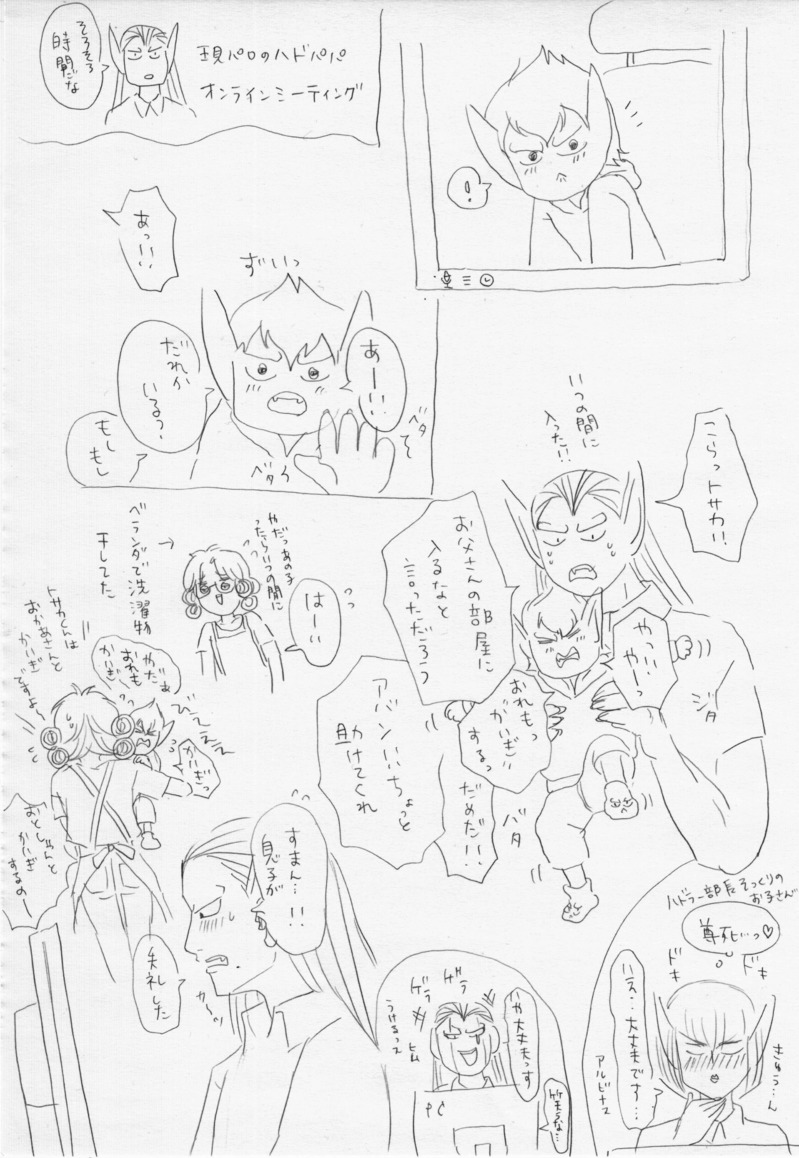 現パロのハドパパ
オンラインミーティング
そろそろ
時間だな
！
ずいっ
あっ!!
あーい
だれか
いるっ
もし
もし
ベタ
ベタ
こらっトサカ!!
いつの間に
入った!!
お父さんの部屋に
入るなと
言っただろう
やっ!!
やーっ
おれもっ
かいぎ
するっ
だめだ!!
ジタ
バタ
アバンいちょっと
助けてくれ
はーい
やだっあの子
ったらいつの間に
ベランダで洗濯物
干してた
トサカくんは
おかあさんと
かいぎ
ですよ〜
やだぁ
おれも
かいぎ
びえええ
かいぎっ
おとしゃんと
かいぎ
するのー
すまん…!!
息子が
失礼した
カーッ
ゲラ
ゲラ
や大丈夫っす
うけるって
ヒム
笑うな…
PC
ハドラー部長そっくりの
お子さん
尊死…っ♡
ドキ
ドキ
いえ…大丈夫です…
きゅう…ん
アルビナス